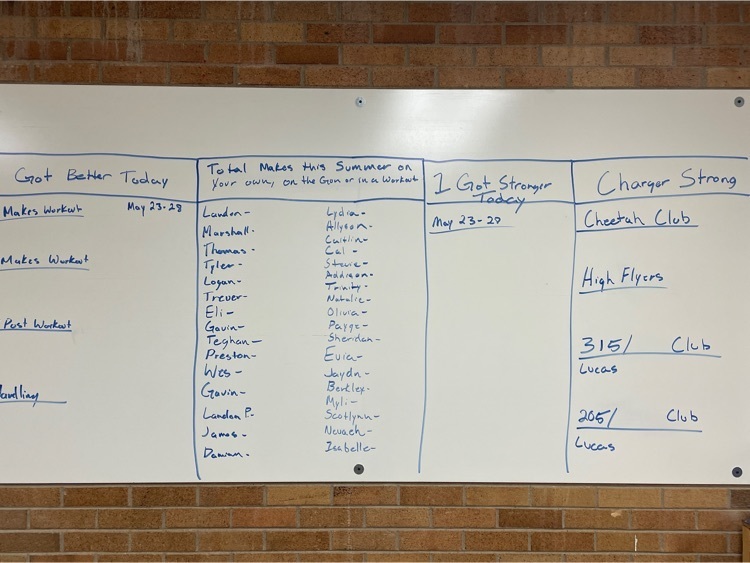 Got Better Today
Makes Workout May 23-28
Makes Workout
Post Workout
andling
Total Makes this Summer on
Your own, on the Gun or in a Workout
Landon-
Marshall-
Thomas-
Tyler-
Logan-
Trever-
Eli-
Gavin-
Teghan-
Preston-
Wes-
Gavin-
Landon P.-
James-
Damian-
Lydia-
Allyson-
Caitlin-
Cal-
Stevie-
Addison-
Trinity-
Natalie-
Olivia-
Payge-
Sheridan-
Evia-
Jaydn-
Berkley-
Myli-
Scotlynn-
Nevaeh-
Isabelle-
I Got Stronger
Today
May 23-29
Charger Strong
Cheetah Club
High Flyers
315/ Club
Lucas
205/ Club
Lucas